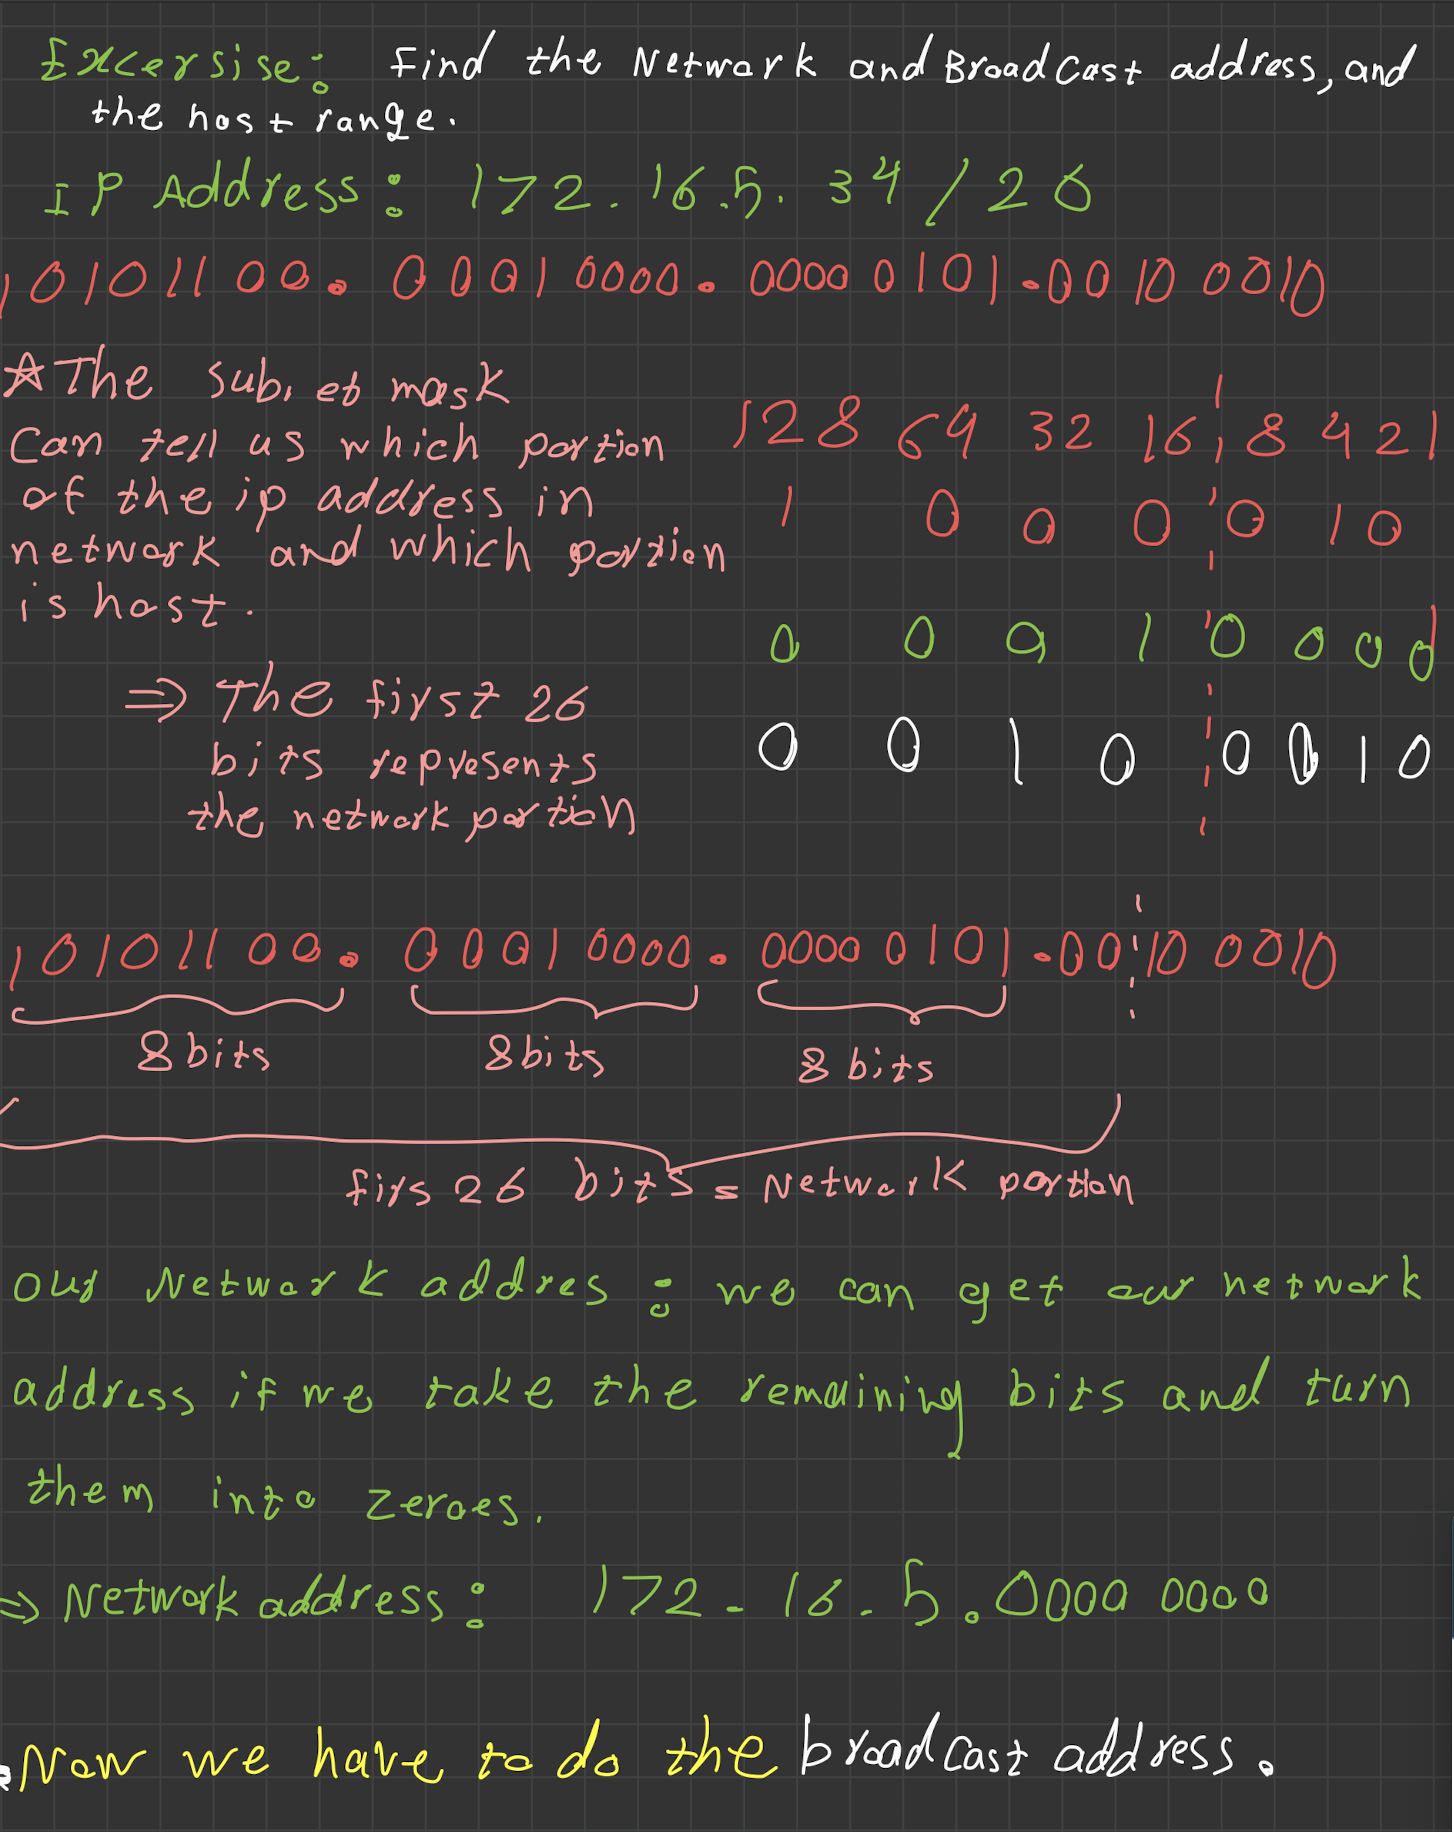 Excersise: Find the Network and BroadCast address, and
the host range.
IP Address: 172.16.5.34/26
10101100.00010000.00000101.00100010
☆The subnet mask
Can tell us which portion
of the ip address in
network and which portion
is host.
⇒ The first 26
bits represents
the network portion
128 64 32 16 8 4 2 1
1 0 0 0 0 1 0
0 0 0 1 0 0 0 0
0 0 1 0 0 0 1 0
10101100.00010000.00000101.00100010
8 bits 8 bits 8 bits
firs 26 bits = Network portion
our Network addres: we can get our network
address if we take the remaining bits and turn
them into zeroes.
⇒ Network address: 172.16.5.0000 0000
Now we have to do the broadCast address.